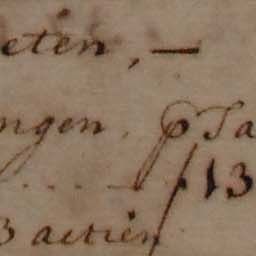 eten, —
ngen, p Ta
.... 13
3 actien